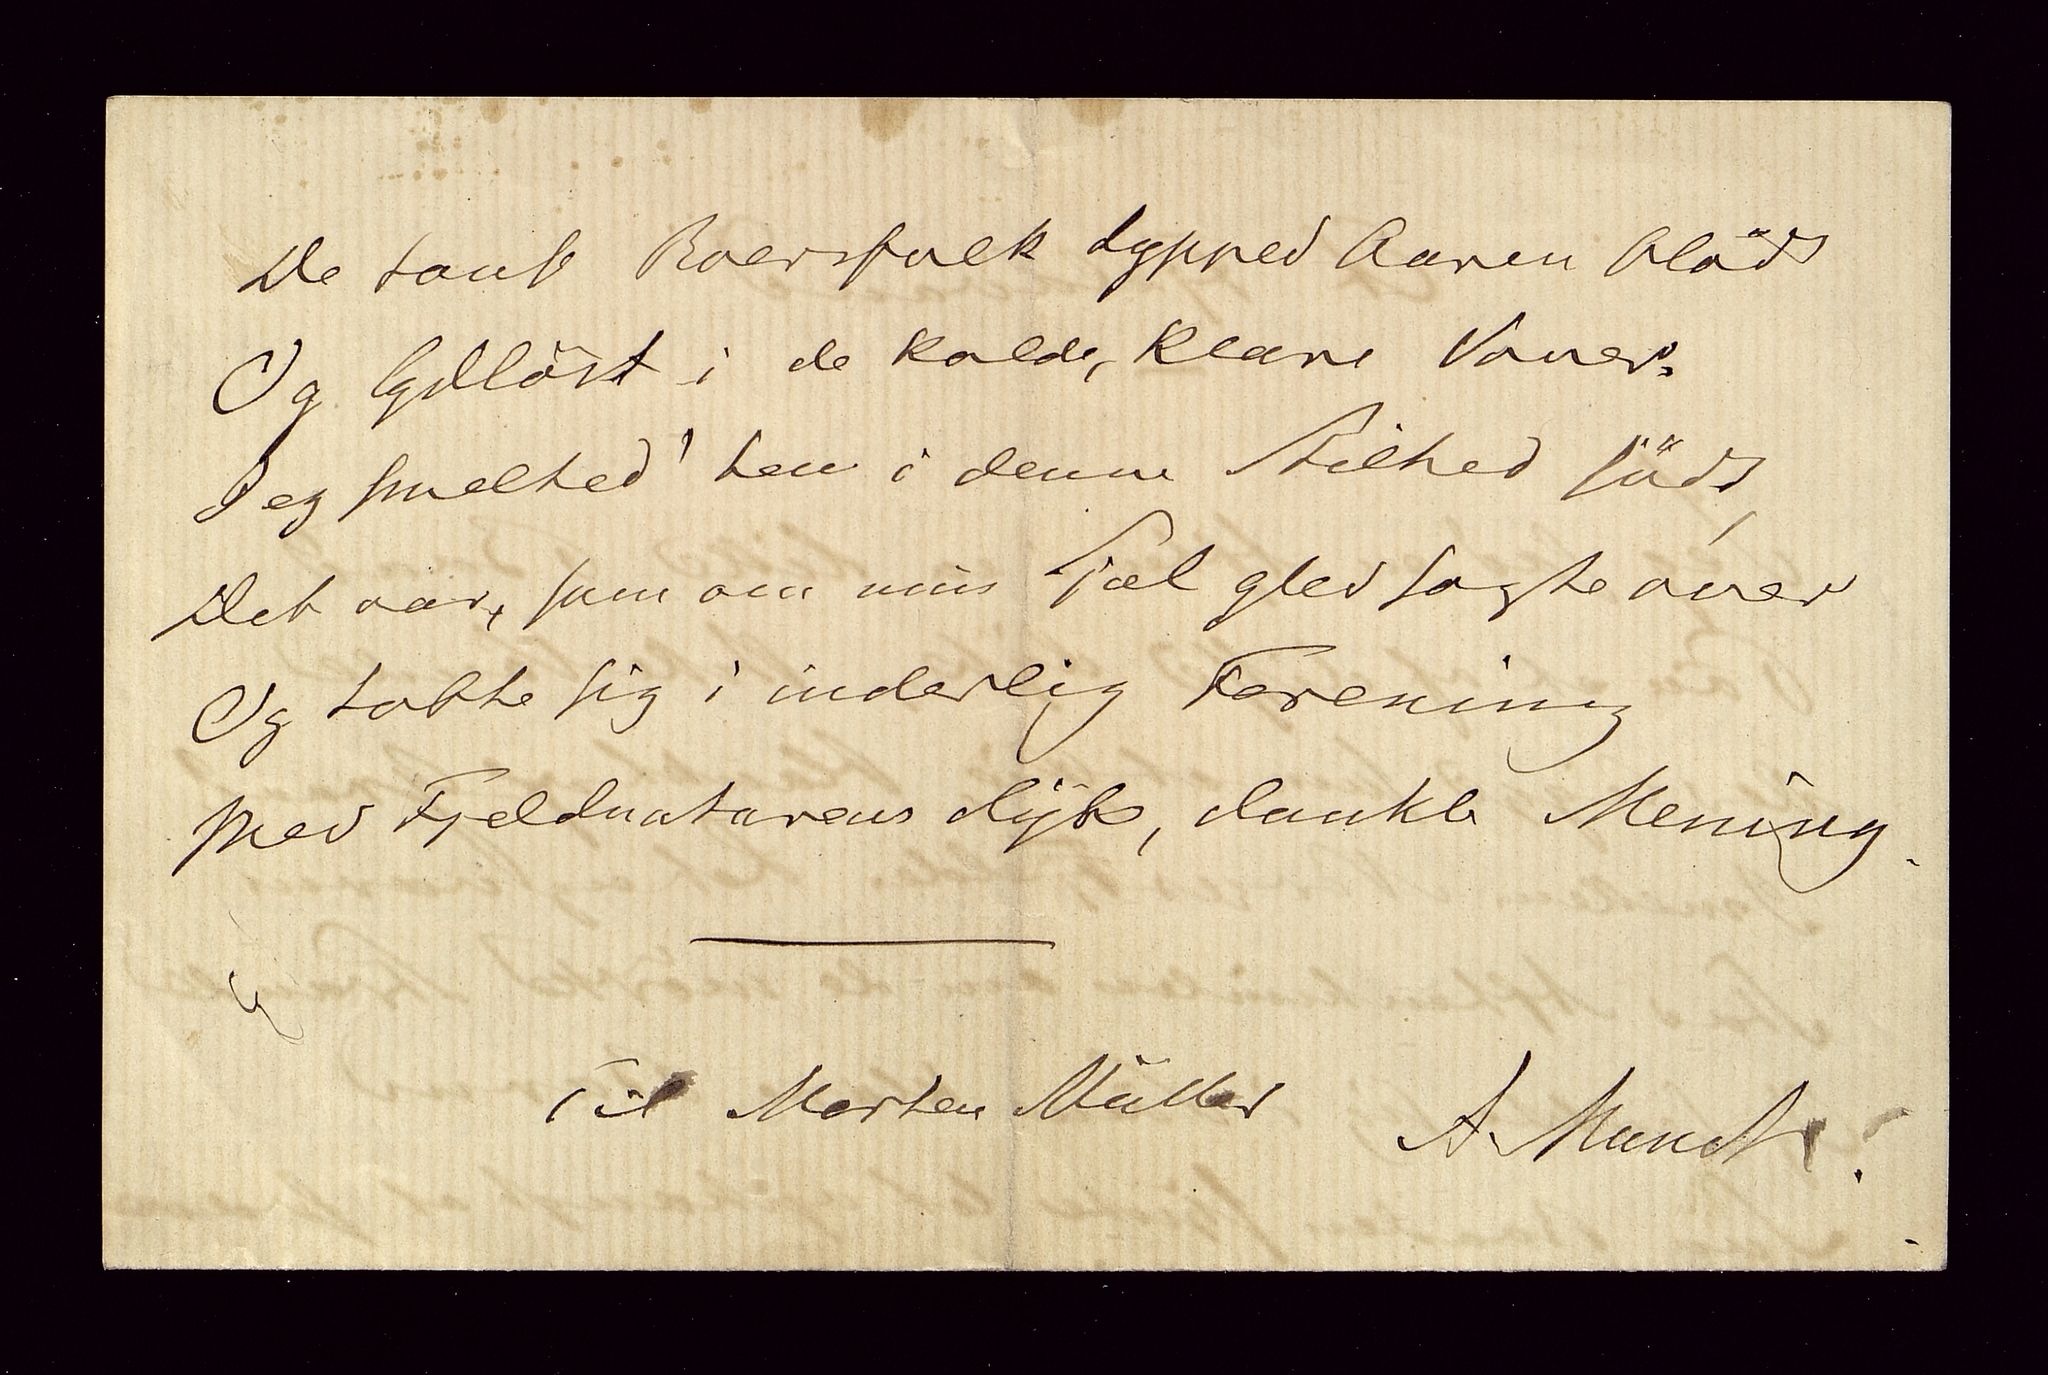 De taus Roersfolk dypped Aaren blødt
Og lydløst i de kolde, klare Vover.
Jeg smelted' hen i denne Stilhed sødt,
Det var, som om min Sjæl gled sagte over
Og tabte sig i inderlig Forening
Med Fjeldnaturens dybe, dunkle Mening.
Til Morten Müller
A. Munch.